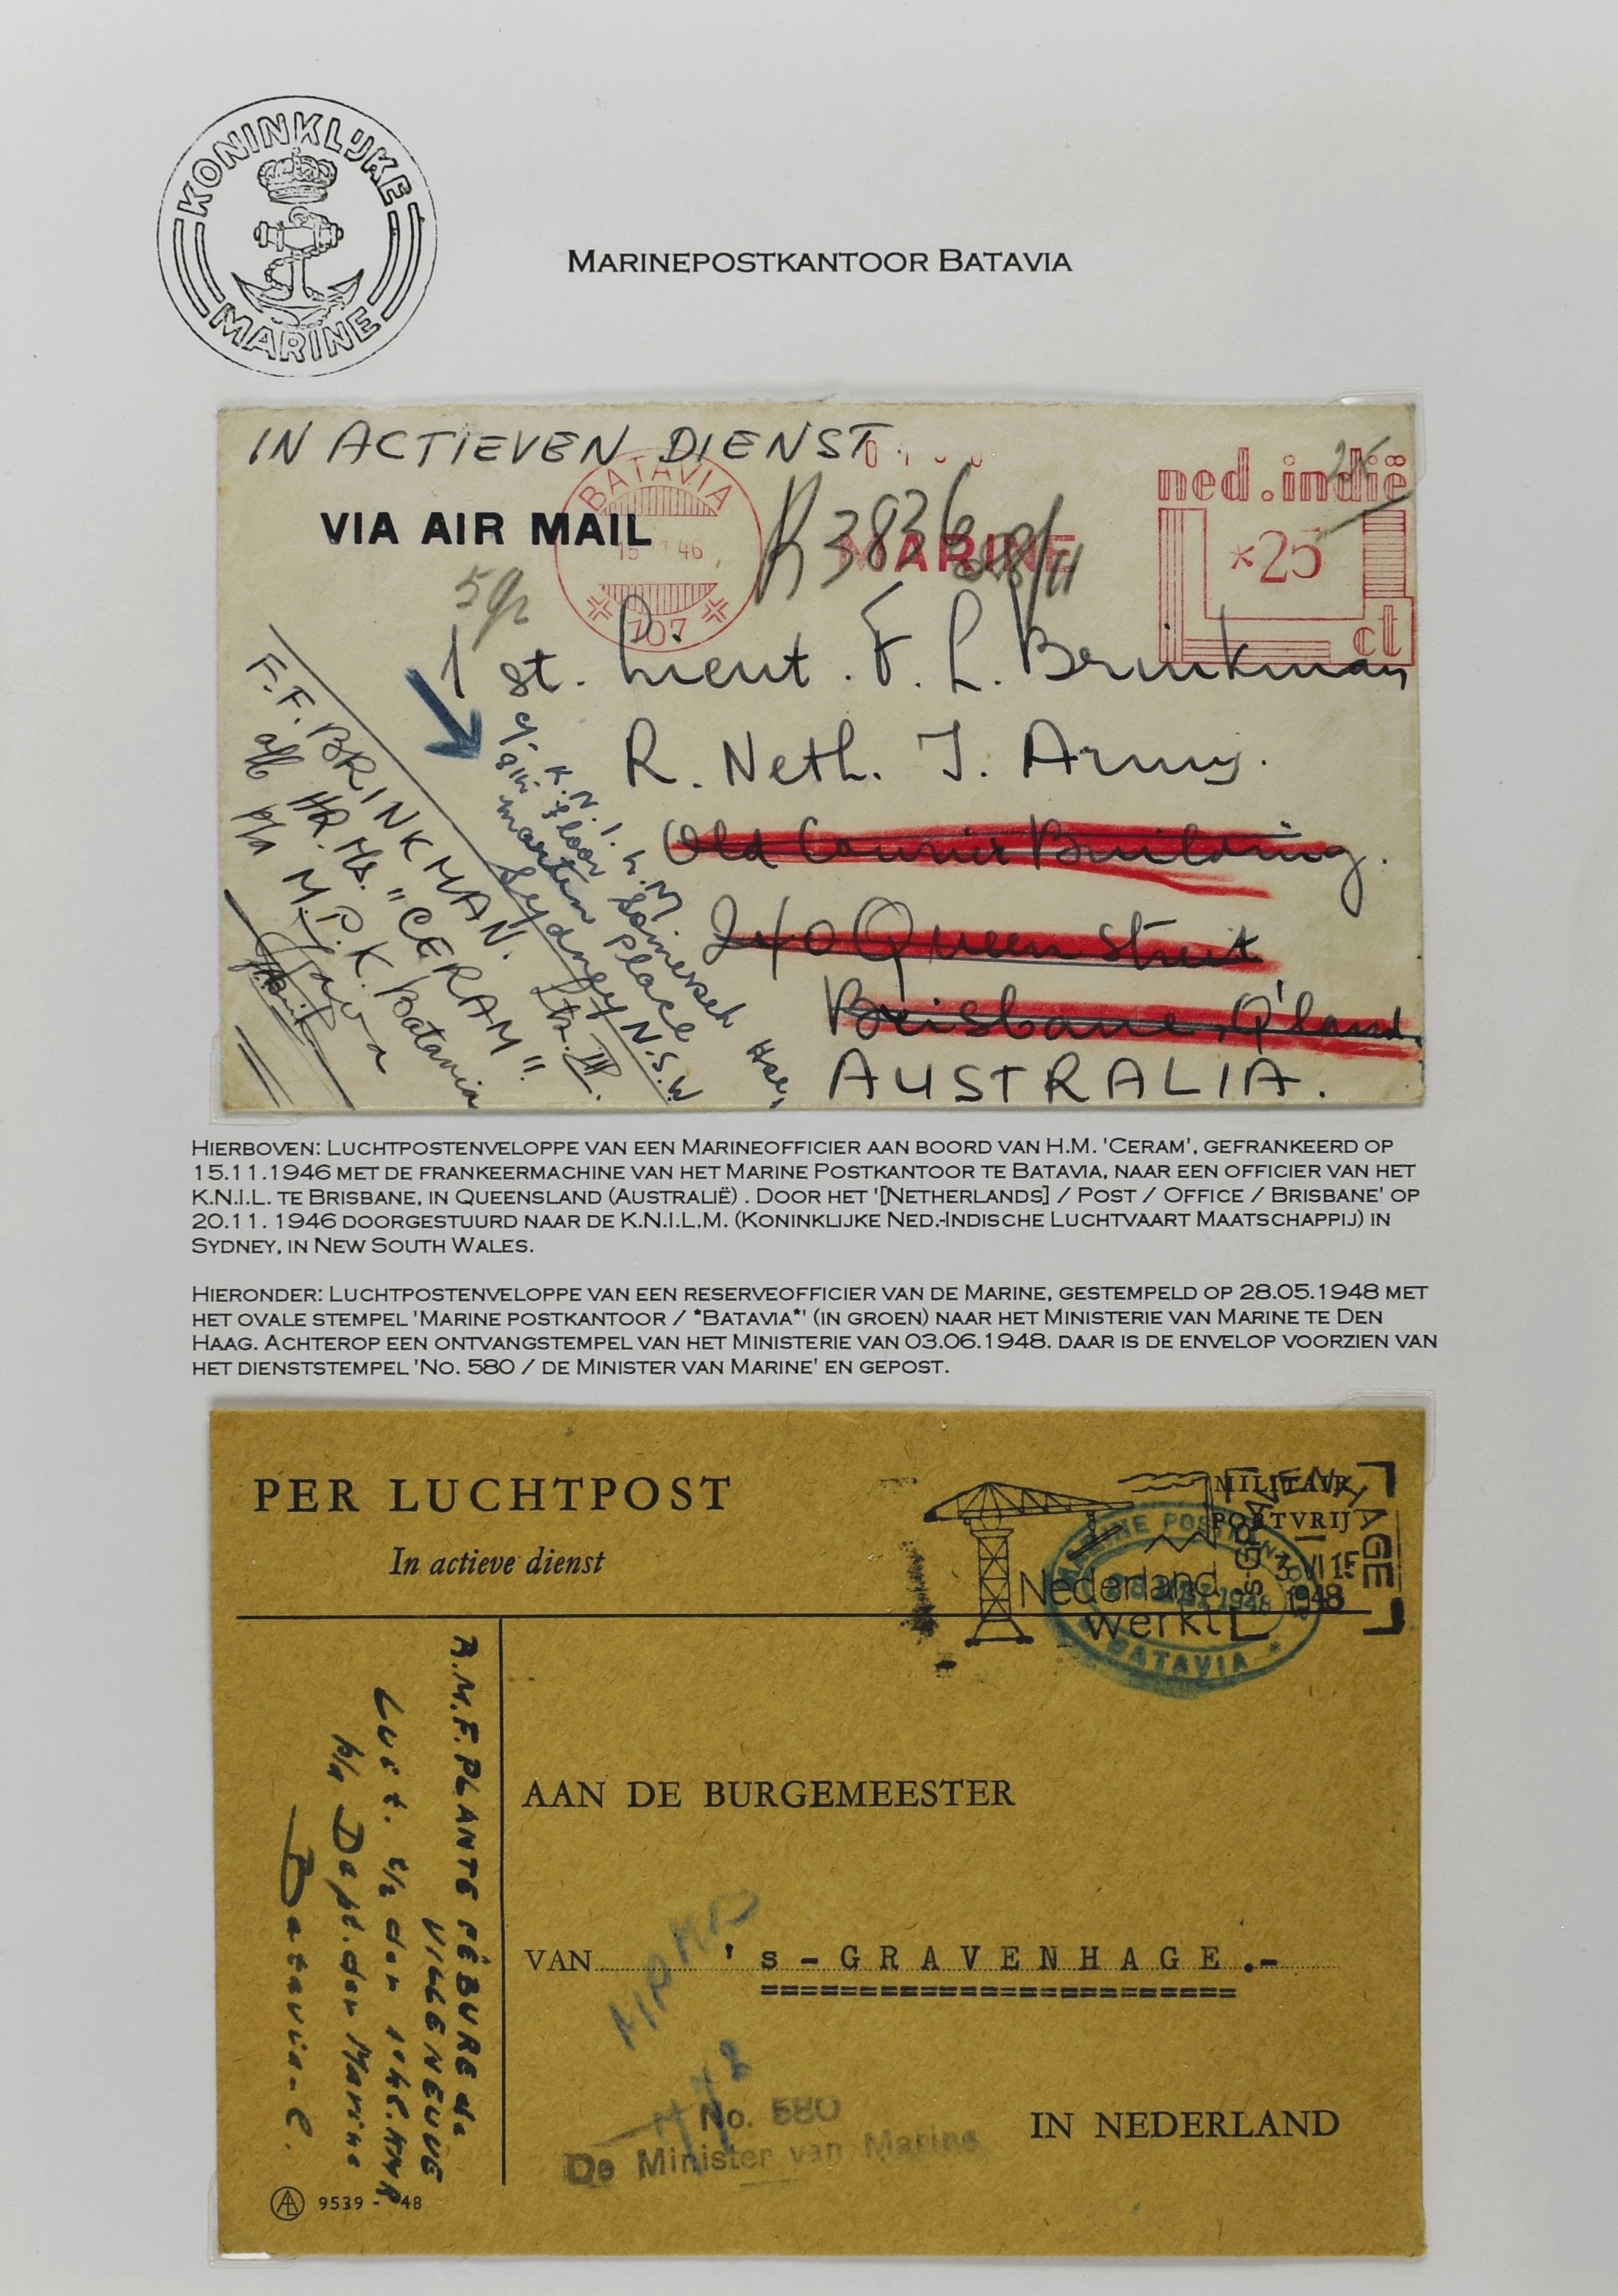 KONINKLIJKE
MARINE
MARINEPOSTKANTOOR BATAVIA
IN ACTIEVEN DIENST.
VIA AIR MAIL
BATAVIA
46
107
K3836
MARINE
ned.indië
*25
ct
25
5gr
1 st. Lieut. F. L. Brinkman
R. Neth. I. Army.
Old Courier Building.
240 Queen Street
Brisbane, Q'land.
AUSTRALIA.
c/o K.N.I.L.M
8th floor Somerseh Hse,
Martin Place
Sydney N.S.W.
F.F. BRINKMAN. Ltz. III.
a/b HR. Ms. "CERAM".
p/a M.P.K. Batavia
Java
HIERBOVEN: LUCHTPOSTENVELOPPE VAN EEN MARINEOFFICIER AAN BOORD VAN H.M. 'CERAM', GEFRANKEERD OP
15.11.1946 MET DE FRANKEERMACHINE VAN HET MARINE POSTKANTOOR TE BATAVIA, NAAR EEN OFFICIER VAN HET
K.N.I.L. TE BRISBANE, IN QUEENSLAND (AUSTRALIË) . DOOR HET '[NETHERLANDS] / POST / OFFICE / BRISBANE' OP
20.11. 1946 DOORGESTUURD NAAR DE K.N.I.L.M. (KONINKLIJKE NED.-INDISCHE LUCHTVAART MAATSCHAPPIJ) IN
SYDNEY, IN NEW SOUTH WALES.
HIERONDER: LUCHTPOSTENVELOPPE VAN EEN RESERVEOFFICIER VAN DE MARINE, GESTEMPELD OP 28.05.1948 MET
HET OVALE STEMPEL 'MARINE POSTKANTOOR / *BATAVIA*' (IN GROEN) NAAR HET MINISTERIE VAN MARINE TE DEN
HAAG. ACHTEROP EEN ONTVANGSTEMPEL VAN HET MINISTERIE VAN 03.06.1948. DAAR IS DE ENVELOP VOORZIEN VAN
HET DIENSTSTEMPEL 'NO. 580 / DE MINISTER VAN MARINE' EN GEPOST.
PER LUCHTPOST
In actieve dienst
MILITAIR
PORTVRIJ
Nederland
werkt
1948
MARINE POSTKANTOOR
1948
* BATAVIA *
A.M.F. PLANTE FÉBURE de
VILLENEUVE
Luit. t/z der 1e kl. KMR
p/a Dept. der Marine
Batavia-C.
AAN DE BURGEMEESTER
VAN 's-GRAVENHAGE.-
No. 580
De Minister van Marine
IN NEDERLAND
AL 9539 - '48